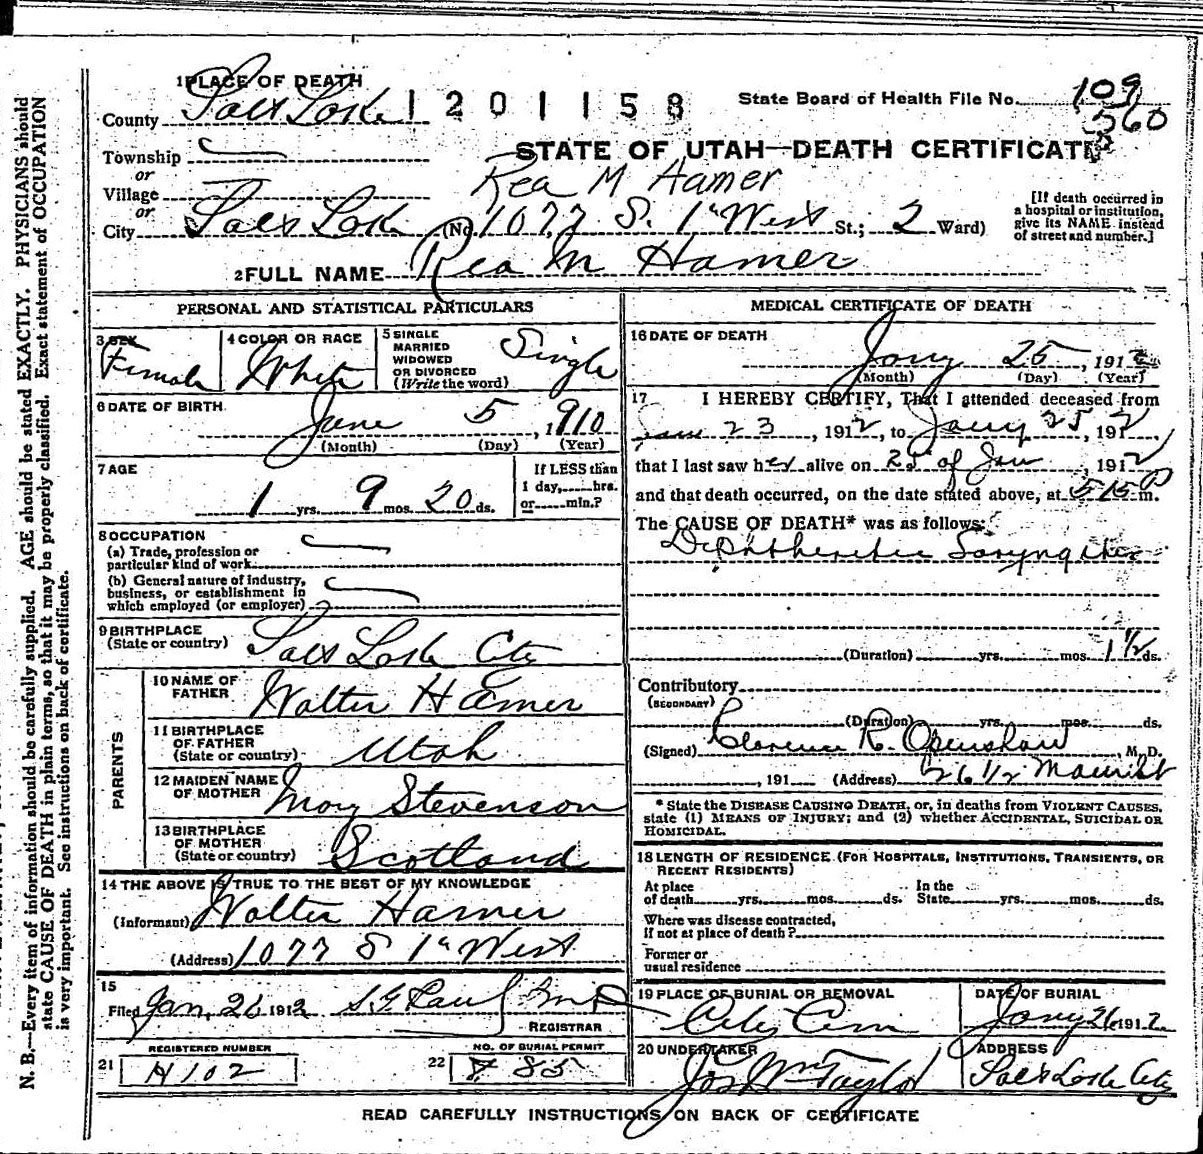 1 PLACE OF DEATH
County Salt Lake 1201158 State Board of Health File No. 109
560
Township
or
STATE OF UTAH—DEATH CERTIFICATE
Village
or
Rea M Hamer
City Salt Lake (No. 1077 S. 1st West St.; 2 Ward)
[If death occurred in
a hospital or institution,
give its NAME instead
of street and number.]
2 FULL NAME Rea M Hamer
PERSONAL AND STATISTICAL PARTICULARS
3 SEX
Female
4 COLOR OR RACE
White
5 SINGLE
MARRIED
WIDOWED
OR DIVORCED
(Write the word)
Single
6 DATE OF BIRTH
June 5, 1910
(Month) (Day) (Year)
7 AGE
1 yrs. 9 mos. 20 ds.
If LESS than
1 day, hrs.
or min.?
8 OCCUPATION
(a) Trade, profession or
particular kind of work
(b) General nature of industry,
business, or establishment in
which employed (or employer)
9 BIRTHPLACE
(State or country)
Salt Lake City
PARENTS
10 NAME OF
FATHER
Walter Hamer
11 BIRTHPLACE
OF FATHER
(State or country)
Utah
12 MAIDEN NAME
OF MOTHER
Mary Stevenson
13 BIRTHPLACE
OF MOTHER
(State or country)
Scotland
14 THE ABOVE IS TRUE TO THE BEST OF MY KNOWLEDGE
(Informant) Walter Hamer
(Address) 1077 S 1st West
15
Filed Jan. 26 1912 S. G. Paul M D
REGISTRAR
REGISTERED NUMBER
21 H102
NO. OF BURIAL PERMIT
22 85
MEDICAL CERTIFICATE OF DEATH
16 DATE OF DEATH
Jany 25, 1912
(Month) (Day) (Year)
17 I HEREBY CERTIFY, That I attended deceased from
Jan 23, 1912, to Jany 25, 1912
that I last saw her alive on 25 of Jan, 1912
and that death occurred, on the date stated above, at 515 P m.
The CAUSE OF DEATH* was as follows:
Diphtheritic Laryngitis
(Duration) yrs. mos. 1 1/2 ds.
Contributory
(SECONDARY)
(Duration) yrs. mos. ds.
(Signed) Clarence R. Openshaw, M. D.
, 191 (Address) 26 1/2
* State the DISEASE CAUSING DEATH, or, in deaths from VIOLENT CAUSES,
state (1) MEANS OF INJURY; and (2) whether ACCIDENTAL, SUICIDAL OR
HOMICIDAL.
18 LENGTH OF RESIDENCE (FOR HOSPITALS, INSTITUTIONS, TRANSIENTS, OR
RECENT RESIDENTS)
At place
of death yrs. mos. ds.
In the
State yrs. mos. ds.
Where was disease contracted,
if not at place of death?
Former or
usual residence
19 PLACE OF BURIAL OR REMOVAL
City Cem
DATE OF BURIAL
Jany 26 1912
20 UNDERTAKER
Jos Wm Taylor
ADDRESS
Salt Lake City
READ CAREFULLY INSTRUCTIONS ON BACK OF CERTIFICATE
N. B.—Every item of information should be carefully supplied. AGE should be stated EXACTLY. PHYSICIANS should
state CAUSE OF DEATH in plain terms, so that it may be properly classified. Exact statement of OCCUPATION
is very important. See instructions on back of certificate.